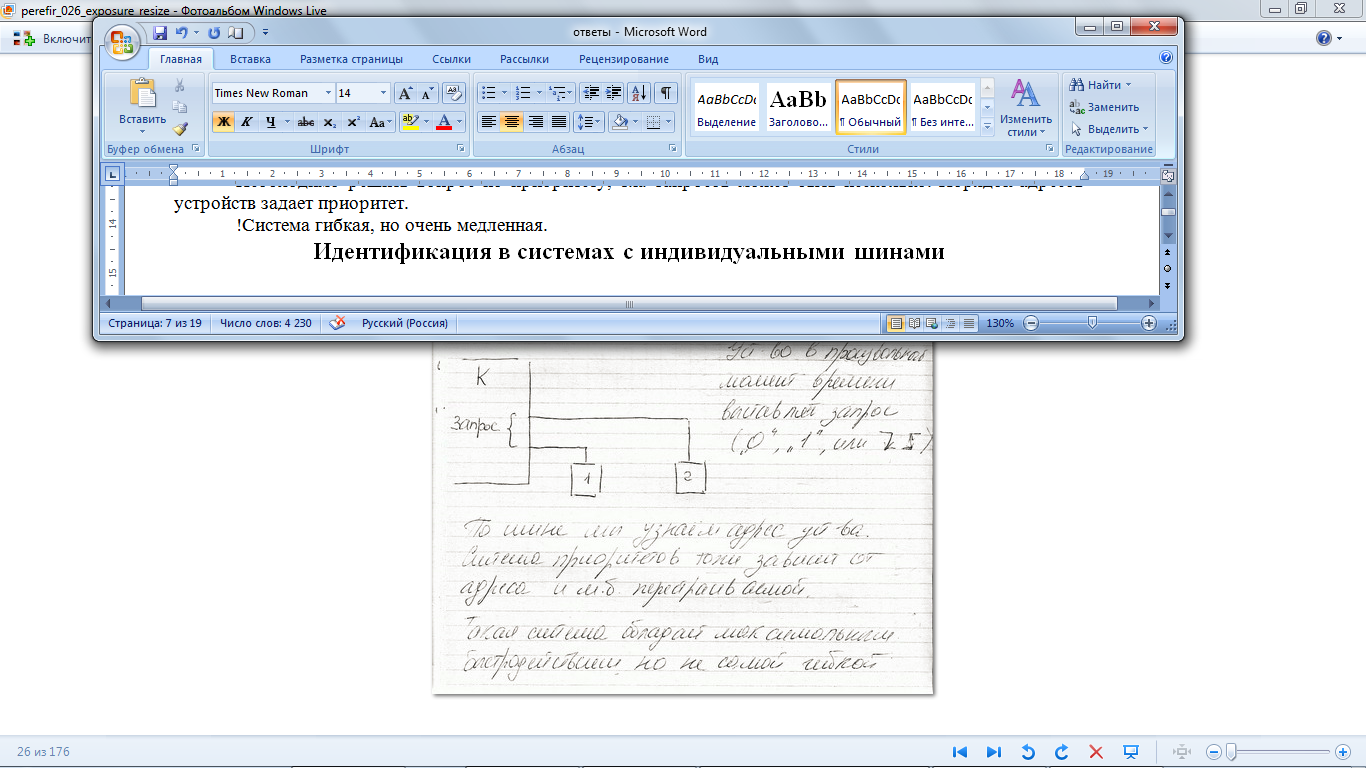 perefir_026_exposure_resize - Фотоальбом Windows Live
Включит
ответы - Microsoft Word
Главная Вставка Разметка страницы Ссылки Рассылки Рецензирование Вид
Вставить
Буфер обмена
Times New Roman 14
Ж К Ч abc x₂ x² Aa
Шрифт
Абзац
AaBbCcDc AaBb AaBbCcDc AaBbCcDc
Выделение Заголово... ¶ Обычный ¶ Без инте...
Стили
Изменить стили
Найти
Заменить
Выделить
Редактирование
1 2 3 4 5 6 7 8 9 10 11 12 13 14 15 16 17 18 19
14
15
устройств задает приоритет.
!Система гибкая, но очень медленная.
Идентификация в системах с индивидуальными шинами
Страница: 7 из 19 Число слов: 4 230 Русский (Россия) 130%
Уст-во в произвольный
момент времени
выставляет запрос
(„0", „1", или
К
Запрос
1
2
По шине мы узнаём адрес уст-ва.
Система приоритетов тоже зависит от
адреса и м.б. перестраиваемой.
Такая система обладает максимальным
быстродействием но не самой гибкой
26 из 176